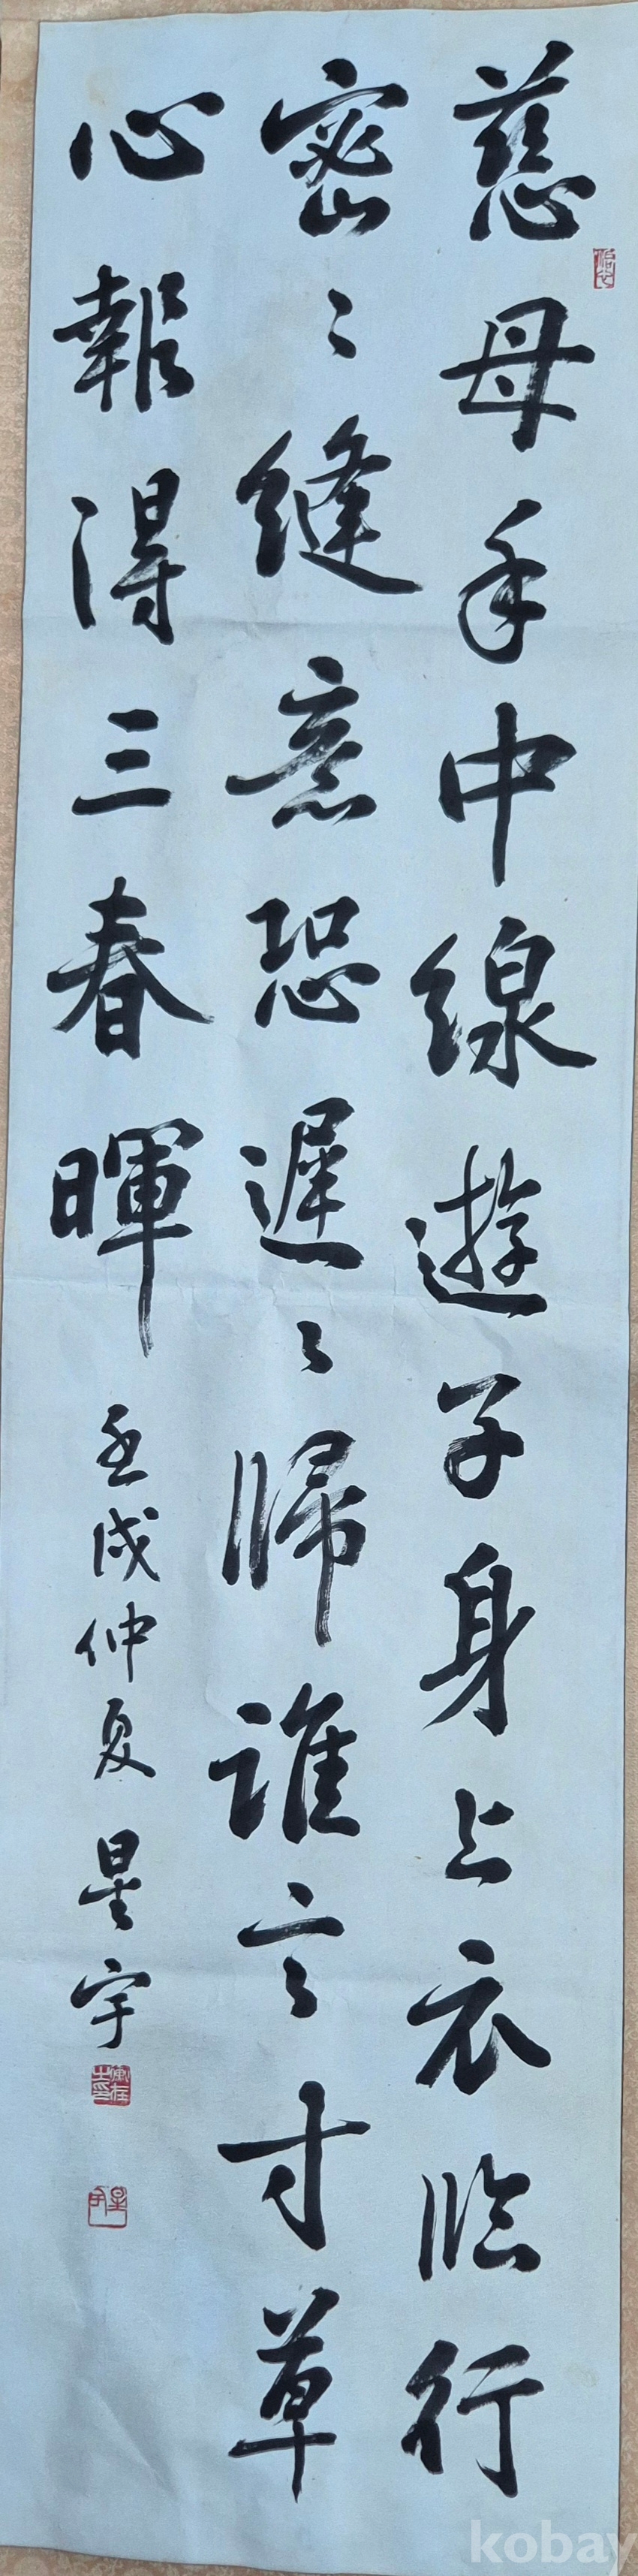 慈母手中線遊子身上衣臨行
密〻縫意恐遲〻歸誰言寸草
心報得三春暉
壬戌仲夏 星宇
kobay